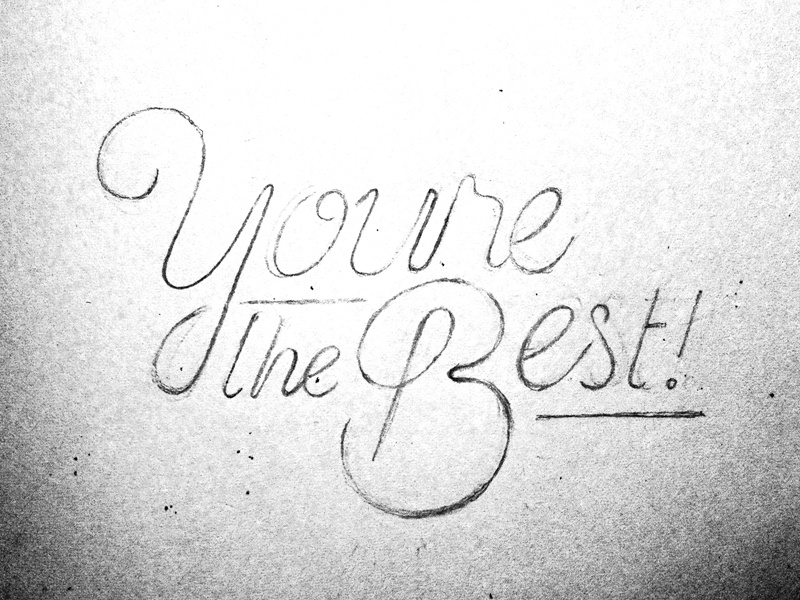 Youre
the Best!